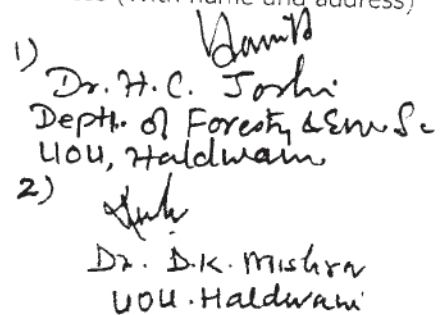 (with name and address)
1)
Dr. H. C. Joshi
Deptt. of Forestry & Env. Sc
UOU, Haldwani
2)
Dr. D.K. Mishra
UOU. Haldwani